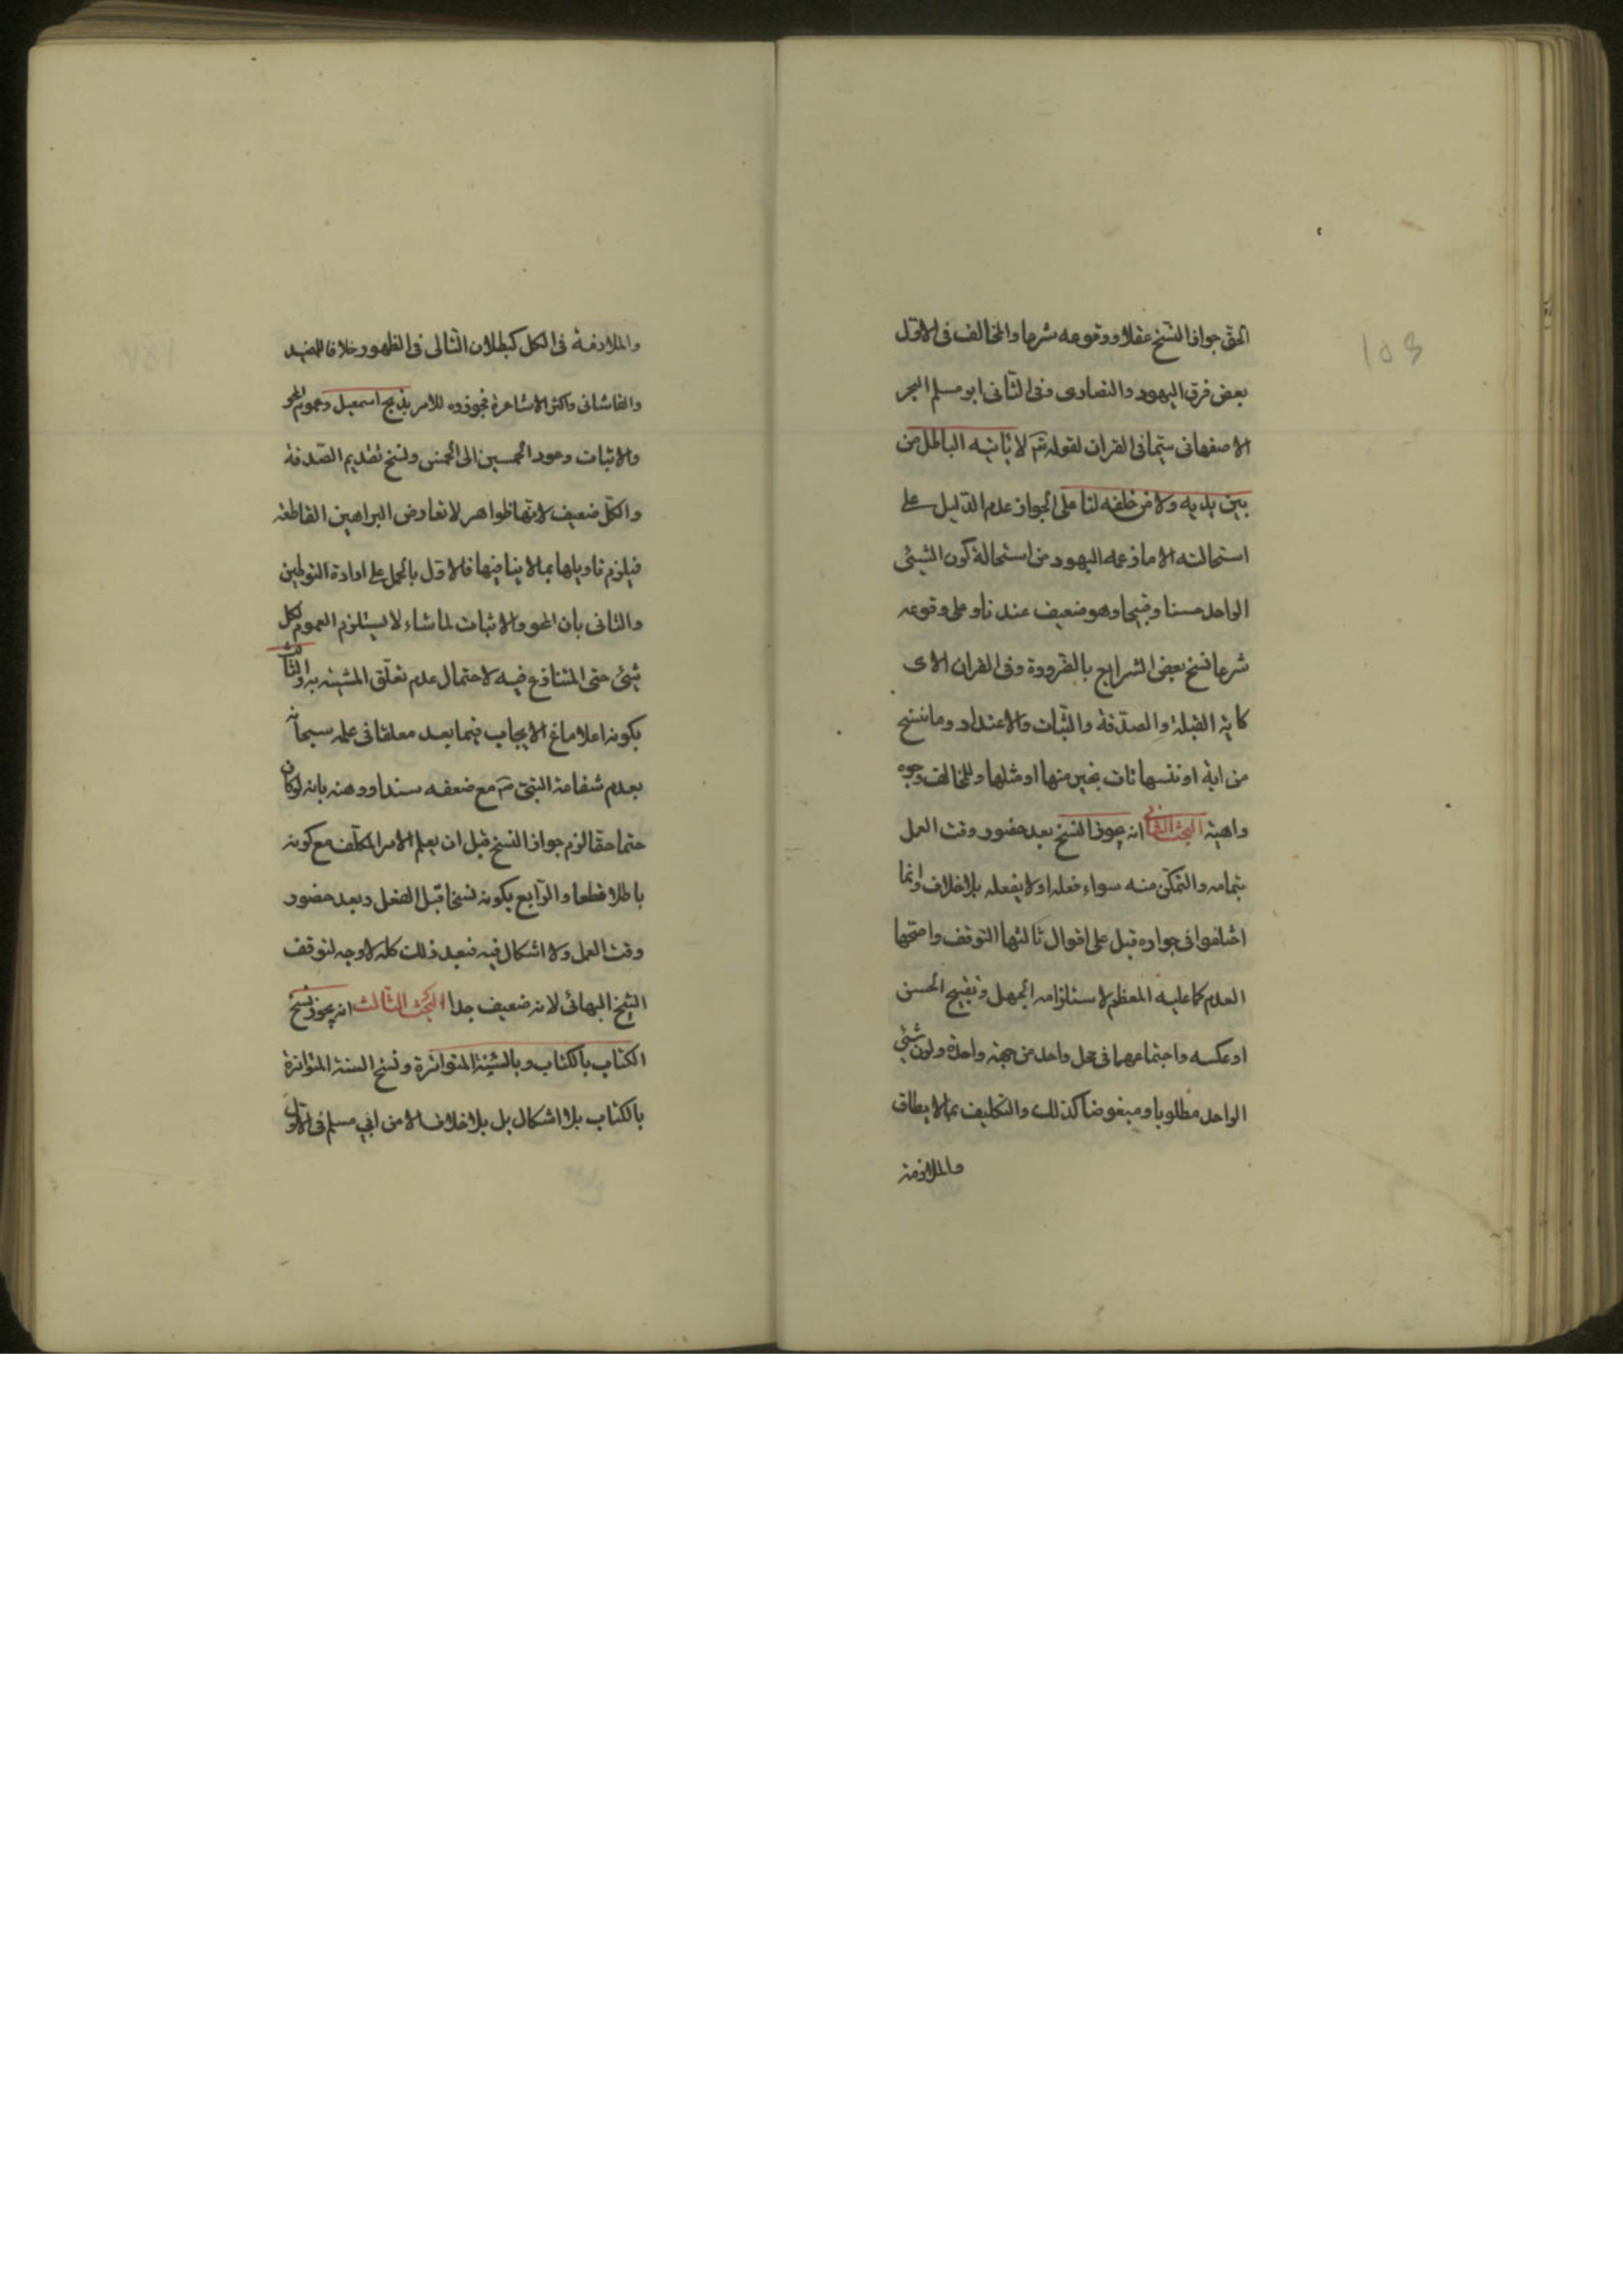 ١٥٤
الحق جواز النسخ عقلا ووقوعه شرعا والمخالف فى الاول
بعض فرق اليهود والنصارى وفى الثانى ابو مسلم البحر
الاصفهانى سيما فى القران لقوله تع لا ياتيه الباطل من
بين يديه ولا من خلفه لنا على الجواز عدم الدليل على
استحالته الا ما زعمه اليهود من استحالة كون الشيئ
الواحد حسنا وقبيحا وهو ضعيف عندنا وعلى وقوعه
شرعا نسخ بعض الشرايع بالضرورة وفى القران الاى
كاية القبلة والصدقة والثبات والاعتداد وما ننسخ
من اية او ننسها نات بخير منها او مثلها وللمخالف وجوه
واهية البحث الثانى انه يجوز النسخ بعد حضور وقت العمل
بتمامه والتمكن منه سواء فعله او لا يفعله بلا خلاف وانما
اختلفوا فى جوازه قبل على اقوال ثالثها التوقف واصحها
العدم كما عليه المعظم لاستلزامه الجهل وتقبيح الحسن
او عكسه واجتماعهما فى محل واحد من جهة واحدة وكون شيئ
الواحد مطلوبا ومبغوضا كذلك والتكليف بما لا يطاق
والملازمة
والملازمة فى الكل كبطلان التالى فى الظهور خلافا للمفيد
والقاشانى واكثر الاشاعرة فجوزوه للامر بذبح اسمعيل وعموم المحو
والاثبات وعود الخمسين الى الخمس ونسخ تقديم الصدقة
والكل ضعيف لانها ظواهر لا تعارض البراهين القاطعة
فيلزم تاويلها بما لا ينافيها فالاول بالحمل على ارادة التوطين
والثانى بان المحو والاثبات لما شاء لا يستلزم العموم لكل
شيئ حتى المتنازع فيه لاحتمال عدم تعلق المشيئة به والثالث
بكونه اعلاما فى الايجاب فيما بعد معلقا فى علمه سبحانه
بعدم شفاعة النبى ص مع ضعفه سندا ووهنه بانه لو كان
حتما حقا لزم جواز النسخ قبل ان يعلم الامر المكلف مع كونه
باطلا قطعا والرابع بكونه نسخا قبل الفعل وبعد حضور
وقت العمل ولا اشكال فيه فبعد ذلك كله لا وجه لتوقف
الشيخ البهائى لانه ضعيف جدا البحث الثالث انه يجوز نسخ
الكتاب بالكتاب وبالسنة المتواترة ونسخ السنة المتواترة
بالكتاب بلا اشكال بل بلا خلاف الا من ابي مسلم فى الاول